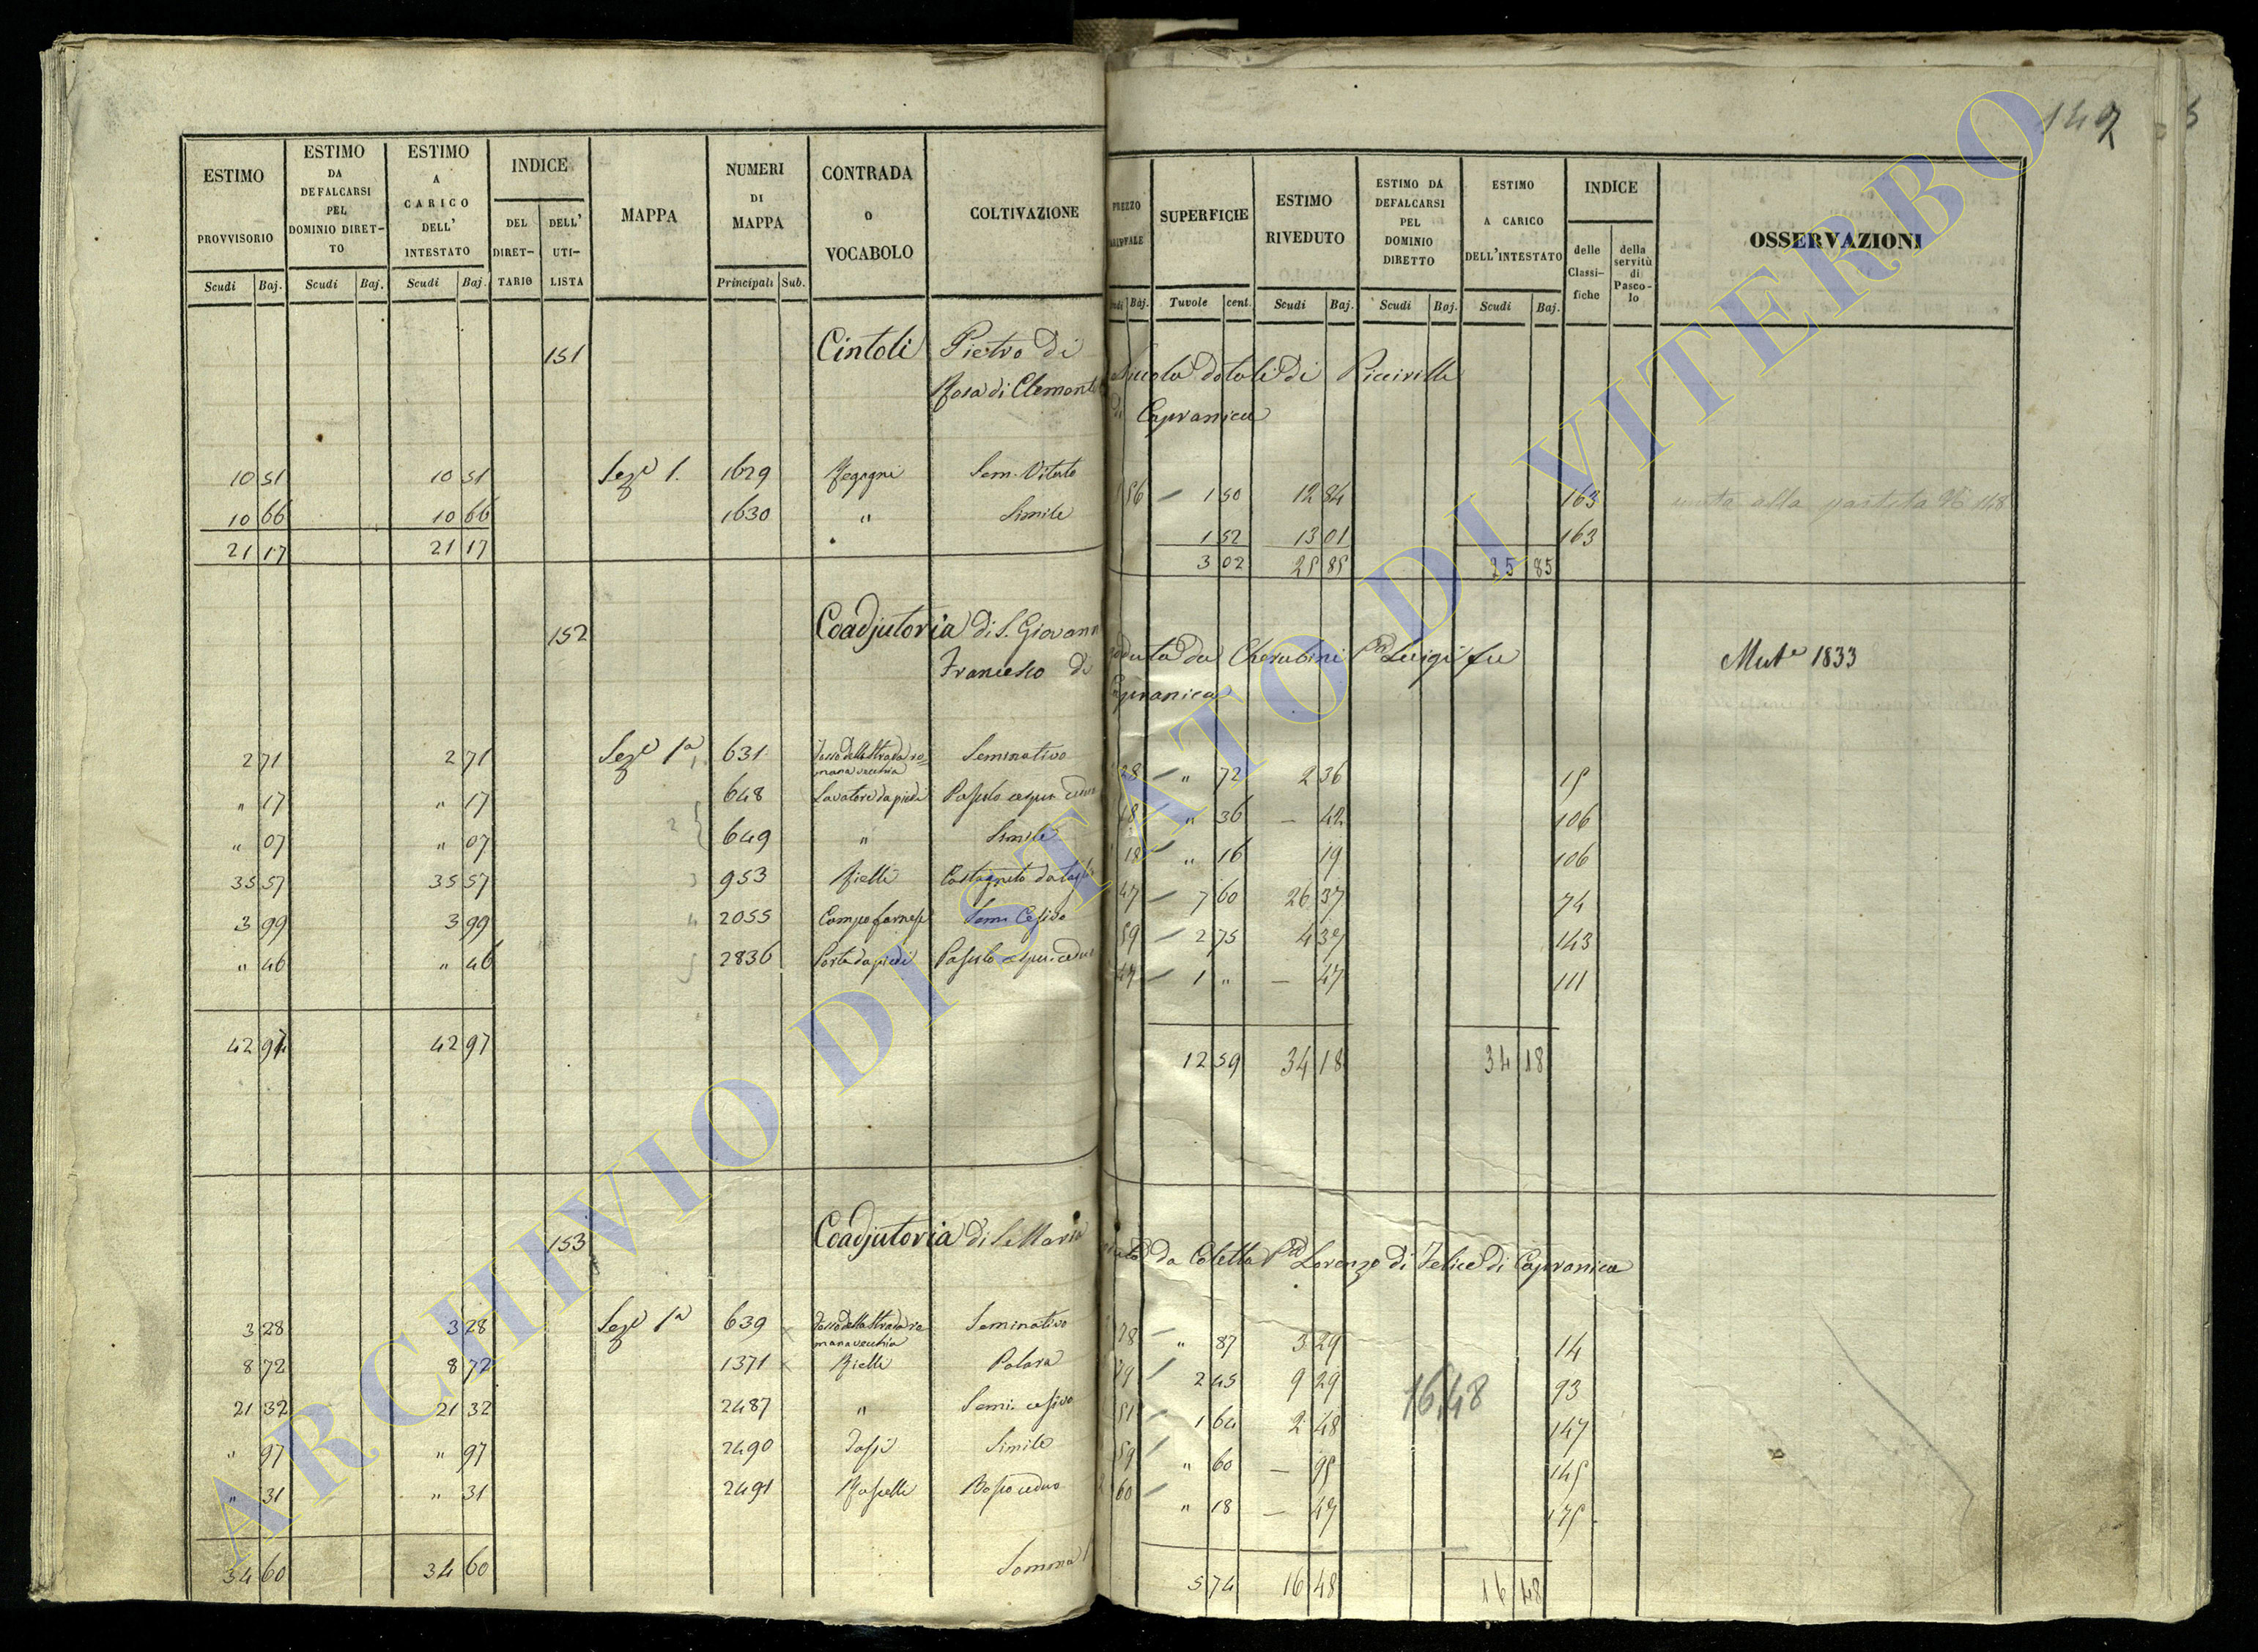 149
ESTIMO PROVVISORIO Scudi Baj.
ESTIMO DA DEFALCARSI PEL DOMINIO DIRET-TO Scudi Baj.
ESTIMO A CARICO DELL' INTESTATO Scudi Baj.
INDICE DEL DIRET-TARIO DELL' UTI-LISTA
MAPPA
NUMERI DI MAPPA Principali Sub.
CONTRADA O VOCABOLO
COLTIVAZIONE
PREZZO Baj.
SUPERFICIE Tavole cent.
ESTIMO RIVEDUTO Scudi Baj.
ESTIMO DA DEFALCARSI PEL DOMINIO DIRETTO Scudi Baj.
ESTIMO A CARICO DELL'INTESTATO Scudi Baj.
INDICE delle Classi-fiche della servitù di Pasco-lo
OSSERVAZIONI
151 Cintoli Pietro di
Rosa di Clemente
di Capranica
10 51 10 51 Seze 1. 1629 Sem. Vitato 56 1 50 12 84 163 alla partita 148
10 66 10 66 1630 " Simile 1 52 13 01 163
21 17 21 17 3 02 25 85 25 85
152 Coadjutoria di S. Giovanni goduta da Cherubini Luigi fu Mut.e 1833
Francesco di Capranica
2 71 2 71 Seze 1a 1 631 Seminativo 28 " 72 2 36 15
" 17 " 17 2 648 18 " 36 — 42 106
" 07 " 07 649 " Simile 18 " 16 19 106
35 57 35 57 3 953 Rielli Castagneto da 47 7 60 26 37 74
3 99 3 99 4 2055 Campo farnese 59 2 75 4 37 143
" 46 " 46 5 2836 47 1 " — 47 111
42 97 42 97 12 59 34 18 34 18
153 Coadjutoria di S. Maria da Coletta Lorenzo di Felice di Capranica
3 28 3 28 Seze 1a 639 Seminativo 78 " 87 3 29 14
8 72 8 72 1371 Rielli 79 2 45 9 29 93
21 32 21 32 2487 " 51 1 64 2 48 16,48 147
" 97 " 97 2490 Simile 59 " 60 — 95 145
" 31 " 31 2491 Bosco ceduo 60 " 18 — 47 175
34 60 34 60 Somma 5 74 16 48 16 48
ARCHIVIO DI STATO DI VITERBO